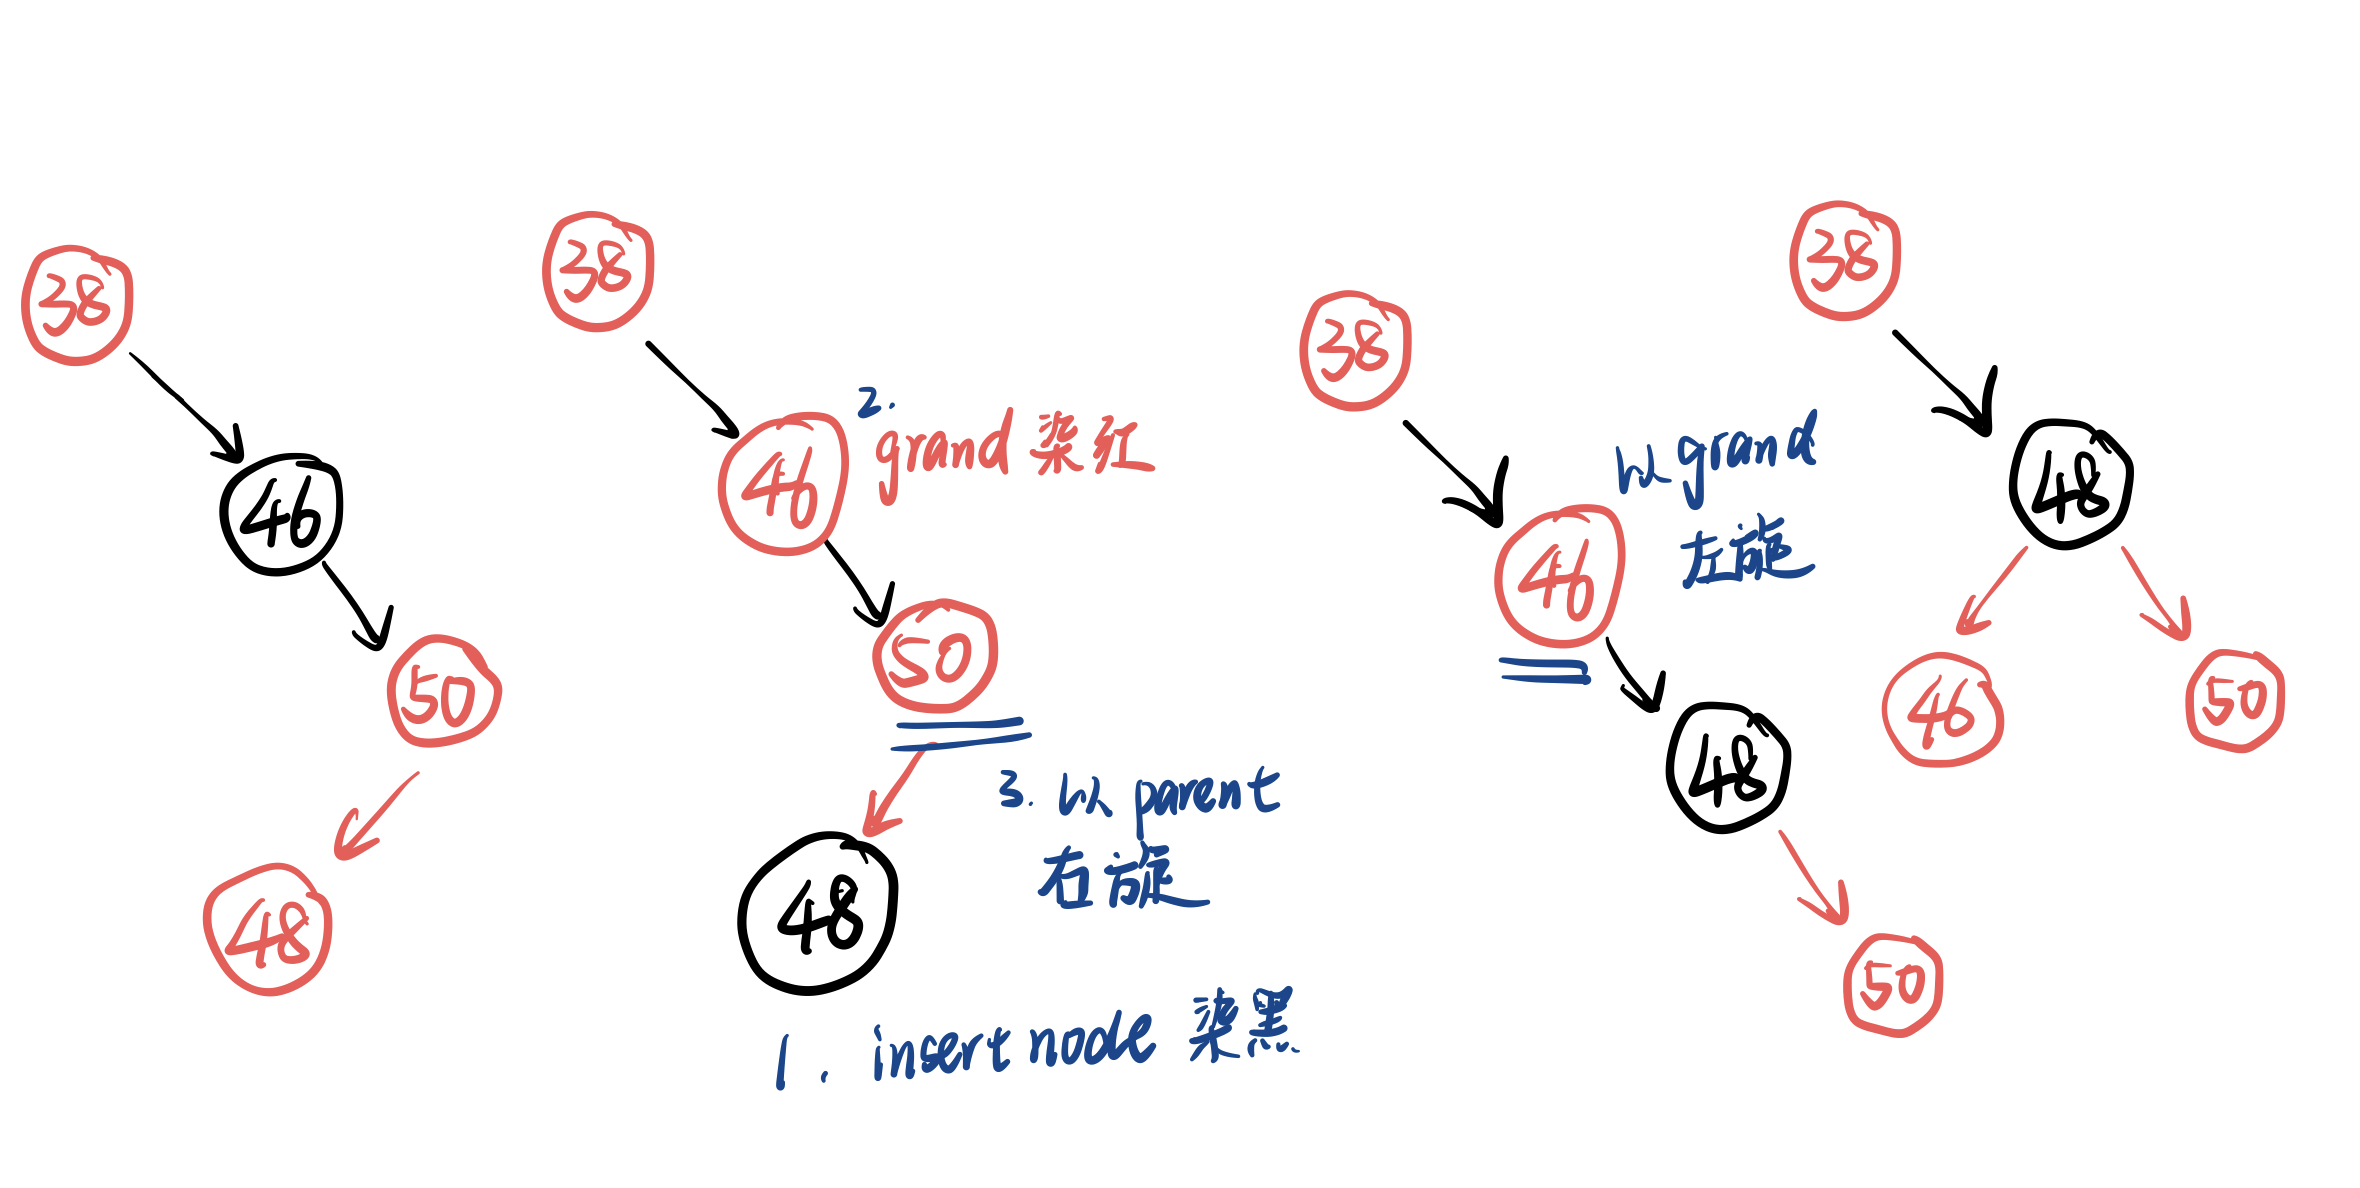 38
46
50
48
38
2.
grand 染红
46
50
3. 以 parent
右旋
48
1. insert node 染黑
38
以 grand
左旋
46
48
50
38
48
46
50